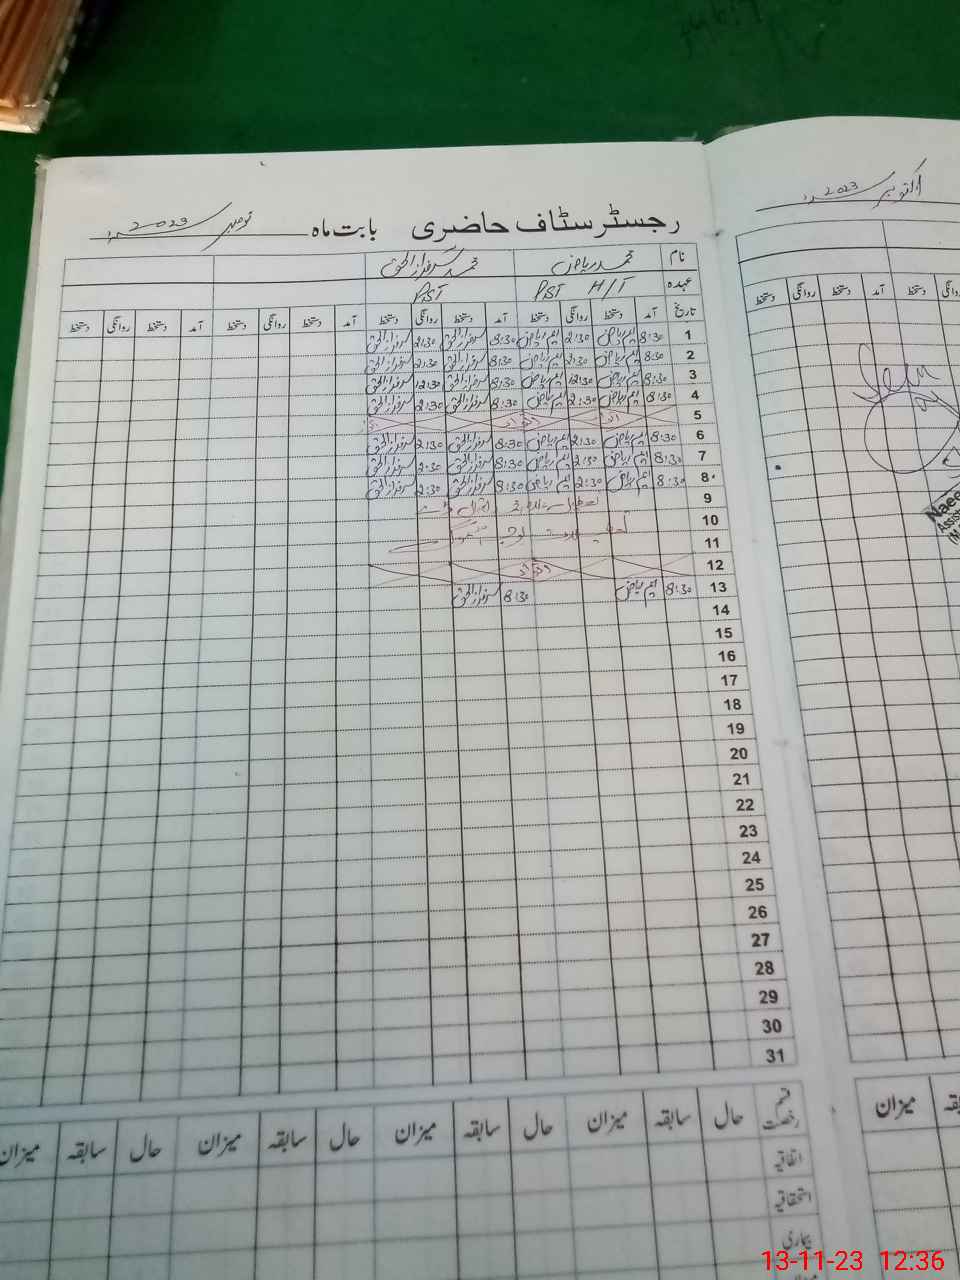 رجسٹر سٹاف حاضری بابت ماہ نومبر 2023ء
اکتوبر 2023ء
نام محمد ریاض محمد سرفراز الحق
عہدہ PST H/T PST
تاریخ آمد دستخط روانگی دستخط آمد دستخط روانگی دستخط آمد دستخط روانگی دستخط آمد دستخط روانگی دستخط
1 8:30 ایم ریاض 2:30 ایم ریاض 8:30 سرفراز الحق 2:30 سرفراز الحق
2 8:30 ایم ریاض 2:30 ایم ریاض 8:30 سرفراز الحق 2:30 سرفراز الحق
3 8:30 ایم ریاض 12:30 ایم ریاض 8:30 سرفراز الحق 12:30 سرفراز الحق
4 8:30 ایم ریاض 2:30 ایم ریاض 8:30 سرفراز الحق 2:30 سرفراز الحق
5 اتوار
6 8:30 ایم ریاض 2:30 ایم ریاض 8:30 سرفراز الحق 2:30 سرفراز الحق
7 8:30 ایم ریاض 2:30 ایم ریاض 8:30 سرفراز الحق 2:30 سرفراز الحق
8 8:30 ایم ریاض 2:30 ایم ریاض 8:30 سرفراز الحق 2:30 سرفراز الحق
9
10
11
12 اتوار
13 8:30 ایم ریاض 8:30 سرفراز الحق
14
15
16
17
18
19
20
21
22
23
24
25
26
27
28
29
30
31
قسم رخصت حال سابقہ میزان حال سابقہ میزان حال سابقہ میزان حال سابقہ میزان
اتفاقیہ
استحقاقیہ
بیماری
میزان
دستخط روانگی دستخط آمد دستخط
Naee
Assist
(M
میزان
13-11-23 12:36